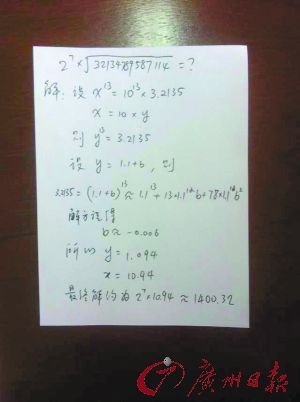 2⁷×√32134789587114 = ?
解: 设 x¹³ = 10¹³ × 3.2135
x = 10 × y
则 y¹³ = 3.2135
设 y = 1.1+b, 则
3.2135 = (1.1+b)¹³ ≈ 1.1¹³ + 13·1.1¹²b + 78×1.1¹¹b²
解方程得
b ≈ -0.006
所以 y = 1.094
x = 10.94
最终解约为 2⁷×10.94 ≈ 1400.32
广州日报